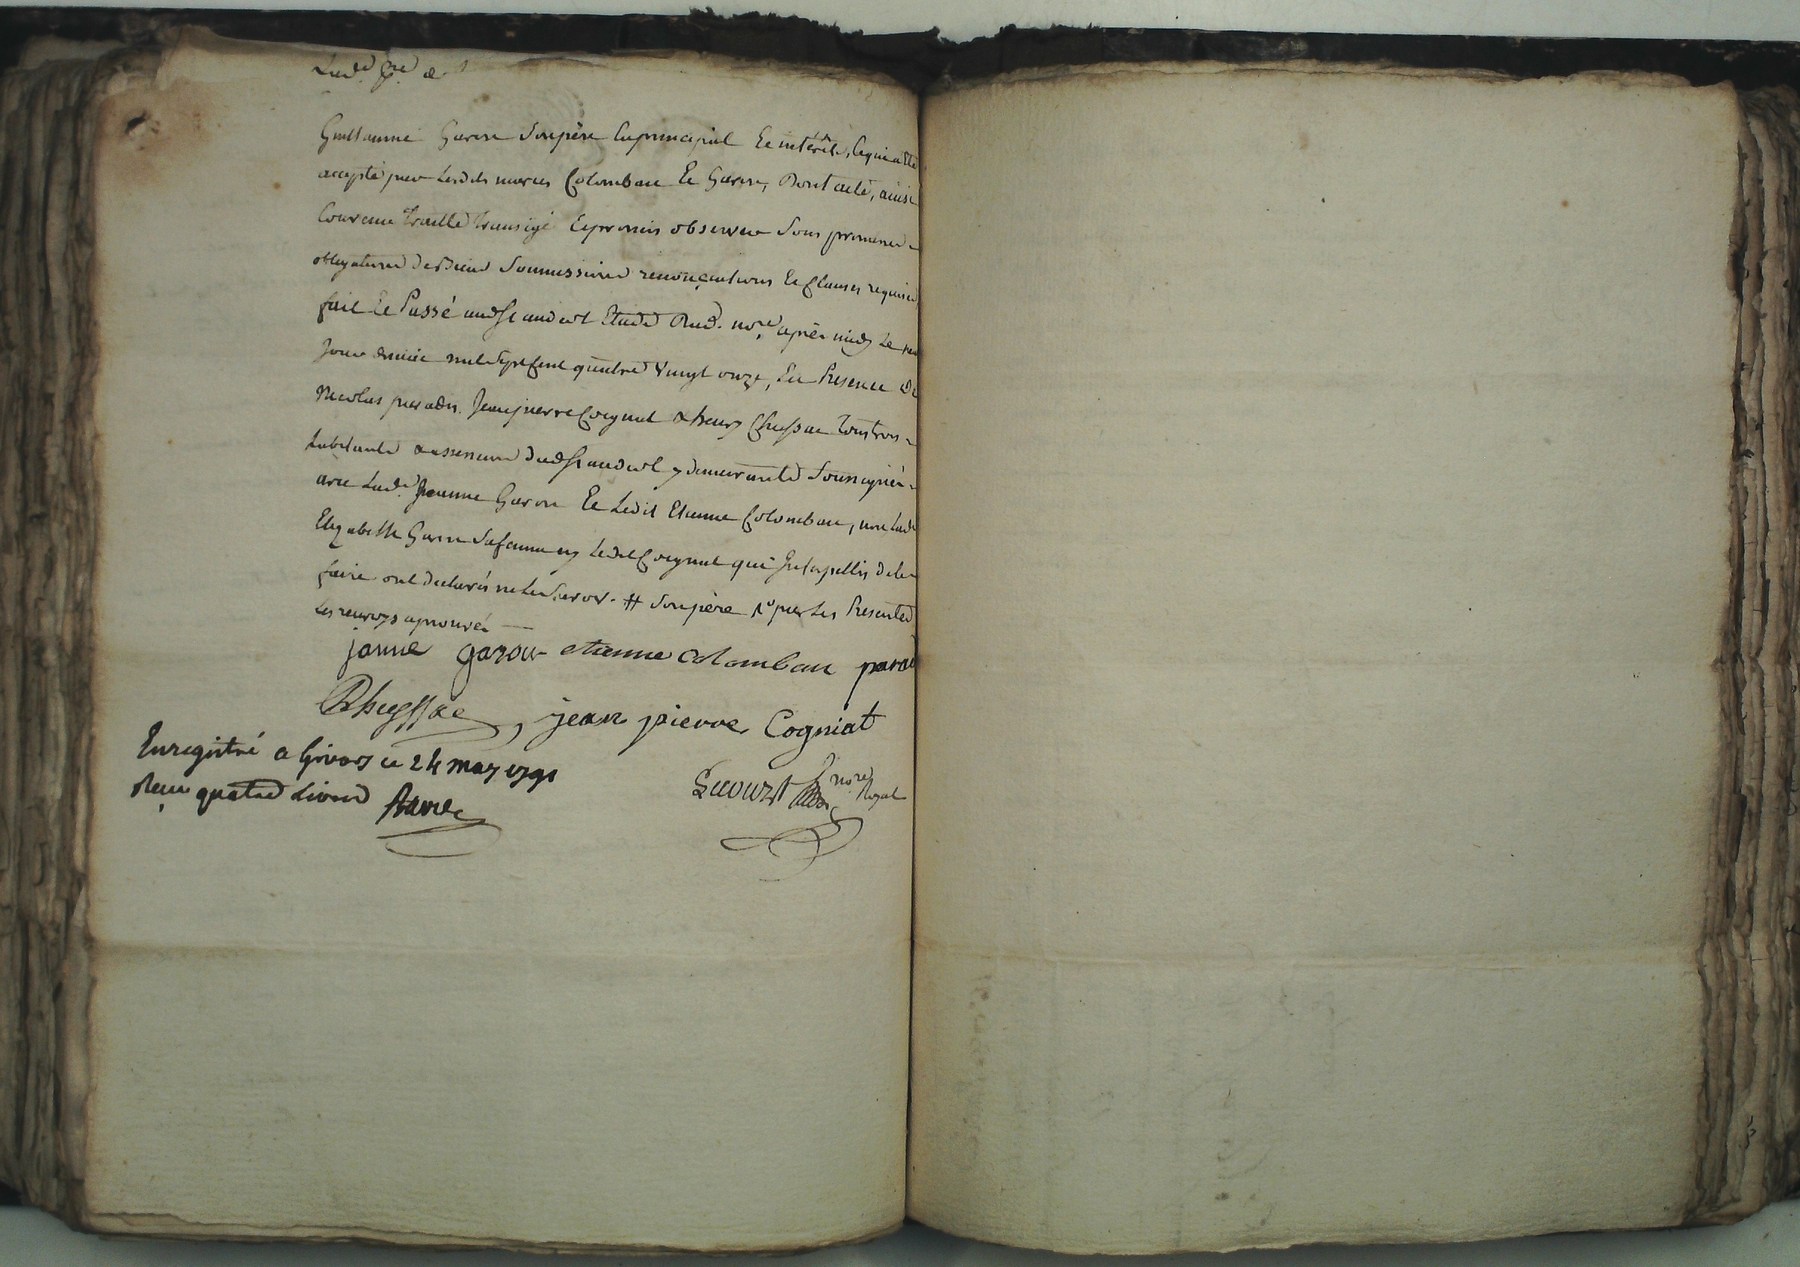 Guillaume Garon Son père En principal Et intérêts, Ce qui a été
accepté par Lesdits mariés Colomban Et Garon, Dont acte, ainsi
Convenu traitté transigé Et promis observer Sous promesses
obligations de Biens Soumissions renonçations Et Clauses requises
fait Et Passé aud St andeol Etude Dud. nore après midy Le
Jour de may mil Sept Cent quatre Vingt onze, En Presence De
Nicolas paradis. Jean pierre Cognat & heury Chussac tous trois
habitants dud St andeol y demeurants Soussignés
avec Lade Jeanne Garon Et Ledit Etienne Colomban, non Lade
Elizabeth Garon Sa femme ny Ledit Cognat qui Interpellés de le
faire ont déclarés ne Le Savoir. # Son père par Les Presentes
Les renvoys aprouvés
janne garon etienne colomban parad
jean pierre Cogniat
Enregistré a Givors ce 24 may 1791
Reçu quatre Livres
nore Royal